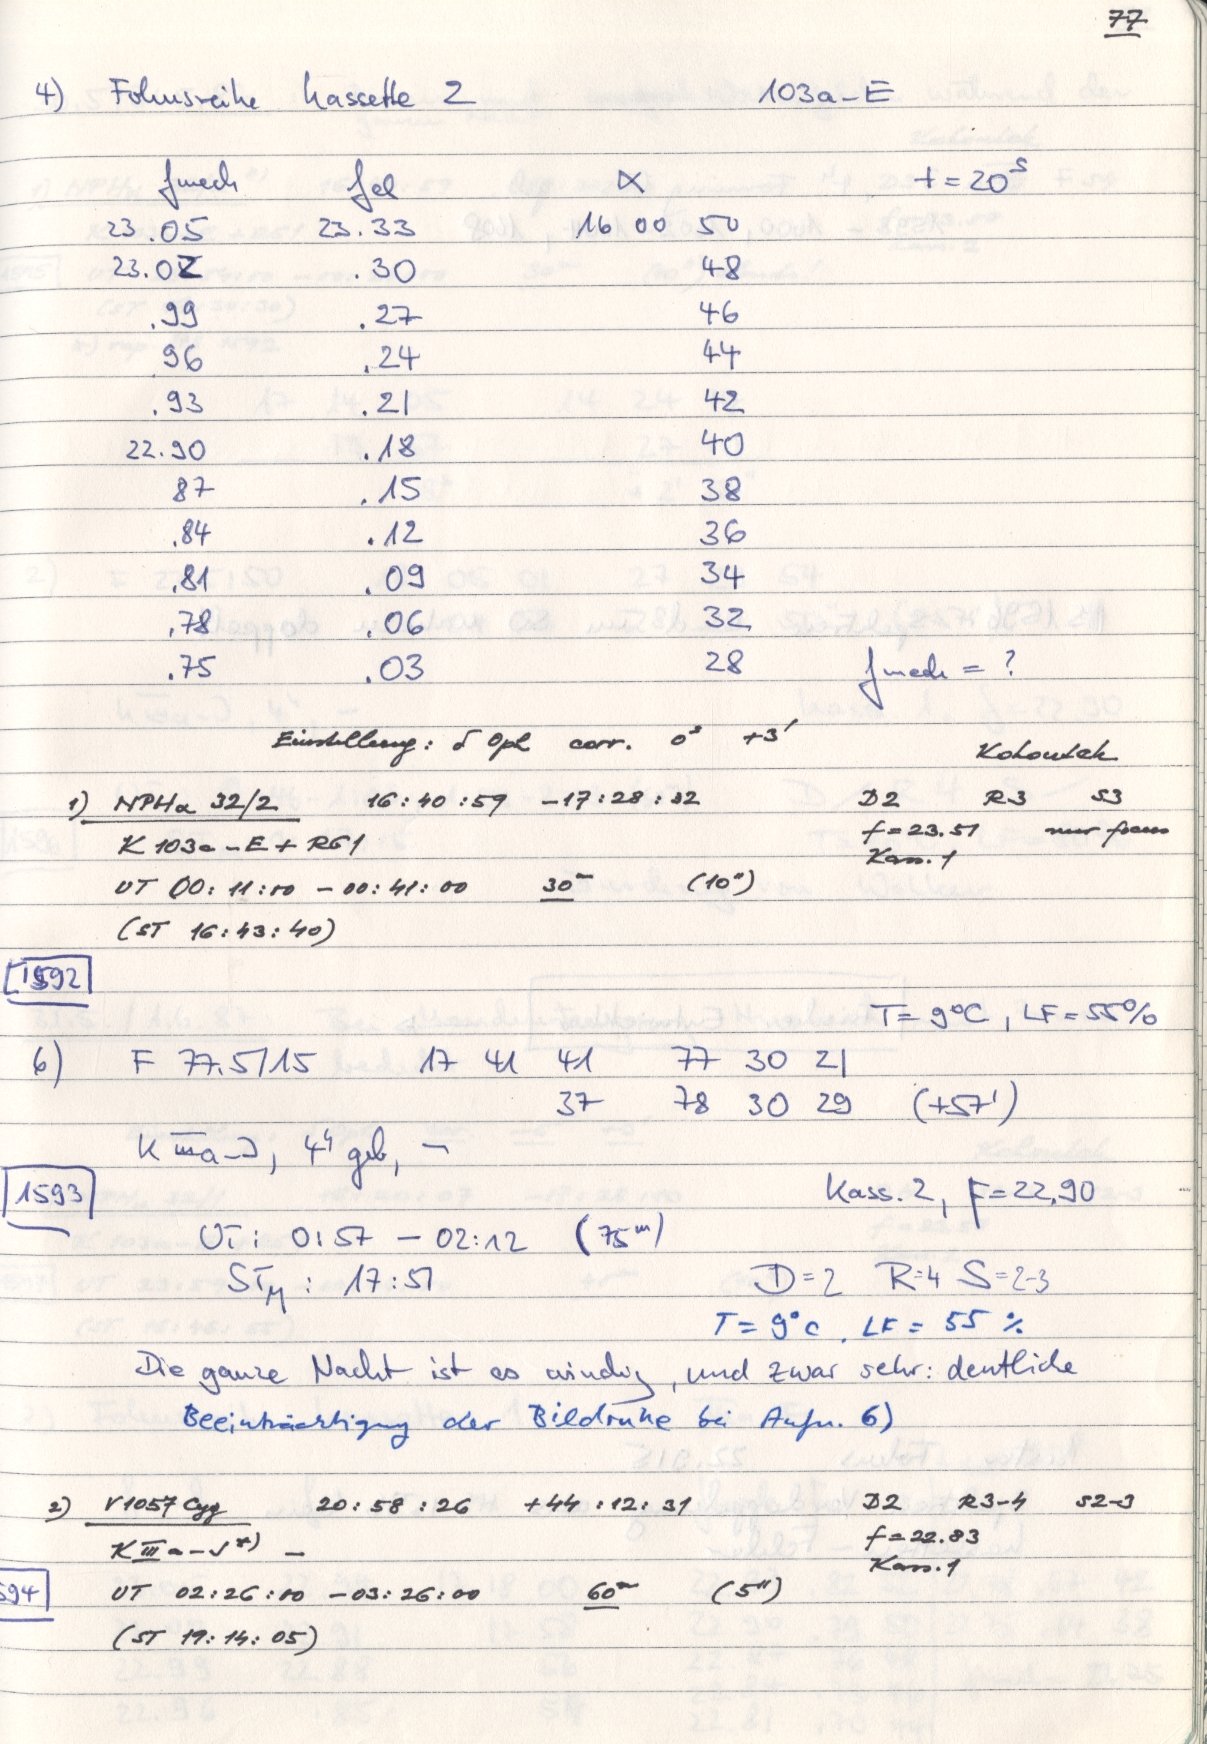 77
4) Fokusreihe Kassette 2 103a-E
fmech fel α t = 20ˢ
23.05 23.33 16 00 50
23.02 .30 48
.99 .27 46
96 .24 44
.93 .21 42
22.90 .18 40
87 .15 38
.84 .12 36
.81 .09 34
.78 .06 32
.75 .03 28 fmech = ?
Einstellung: δ Opl corr. 0ˢ +3'
Kohoutek
1) NPHα 32/2 16:40:59 -17:28:32 D2 R3 S3
K 103a-E + RG1 f=23.51 nur
Kass. 1
UT 00:11:00 - 00:41:00 30ᵐ (10")
(ST 16:43:40)
1592
T = 9°C, LF = 55%
6) F 77.5/15 17 41 41 77 30 21
37 78 30 29 (+57')
K IIIa-J, 4ʰ geb, -
1593
Kass. 2, F=22,90
UT: 0:57 - 02:12 (75ᵐ)
STM: 17:51 D=2 R=4 S=2-3
T = 9°C, LF = 55 %
Die ganze Nacht ist es windig, und zwar sehr: deutliche
Beeinträchtigung der Bildruhe bei Aufn. 6)
2) V1057 Cyg 20:58:26 +44:12:31 D2 R3-4 S2-3
K IIIa-J *) - f=22.83
Kass. 1
594 UT 02:26:00 - 03:26:00 60ᵐ (5")
(ST 19:14:05)